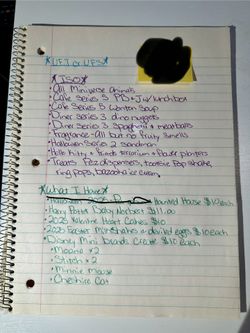 *UFT or UFS*
*ISO*
• All Miniverse Animals
• Cafe Series 3 PB+J w/ lunchbox
• Cafe Series 3 Wonton Soup
• Diner Series 3 dino nuggets
• Diner Series 3 Spaghetti + meatballs
• Fragrance- All but no fruity smells
• Halloween Series 2 Sandman
• Hello Kitty + Friends terrarium + flower planters
• Treats- Pez dispensers, tootsie pop shake,
ring pops, bazooka ice cream,
*What I Have*
• Halloween 2025 Haunted House $10 each
• Harry Potter Baby Norbert $11.00
• 2025 Valentine Heart Cakes $10
• 2025 Easter Milkshakes + deviled eggs $10 each
• Disney Mini brands Create $10 each
• Moana x2
• Stitch x2
• Minnie Mouse
• Cheshire Cat